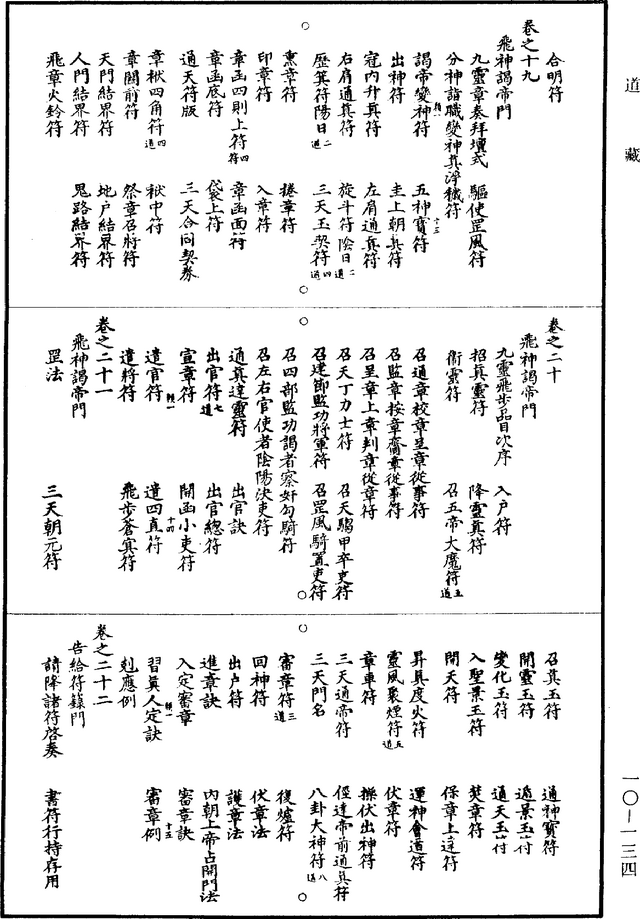 道藏
合明符
卷之十九
飛神謁帝門
九靈章奏拜壇式 驅使罡風符
分神詣職變神真淨穢符
謁帝變神符 類一 五神寶符 十三
出神符 圭上朝真符
冠内升真符 左肩通真符
右肩通真符 旋斗符陰日 二道
歷箕符陽日 二道 三天玉契符 四道
熏章符 捲章符
印章符 入章符
章函四則上符 四符 章函面符
章函底符 袋上符
通天符版 三天合同契券
章栿四角符 四道 栿中符
章關前符 祭章召將符
天門結界符 地戶結界符
人門結界符 鬼路結界符
飛章火鈴符
卷之二十
飛神謁帝門
九靈飛步品目次序 入戶符
招真靈符 降靈真符
衛靈符 召五帝大魔符 五道
召通章校章呈章從事符
召監章按章齎章從事符
召呈章上章判章從章符
召天丁力士符 召天騶甲卒吏符
召建節監功將軍符 召罡風騎置吏符
召四部監功謁者察奸勾騎符
召左右官使者陰陽決吏符
通真達靈符 出官訣
出官符 七道 出官總符
宣章符 類一 開函小吏符 十四
遣官符 遣四直符
遣將符 飛步蒼冥符
卷之二十一
飛神謁帝門
罡法 三天朝元符
召真玉符 通神寶符
開靈玉符 遁景玉符
變化玉符 通天玉符
入聖景玉符 焚章符
開天符 保章上達符
昇真度火符 運神會道符
靈風聚煙符 五道 伏章符
章車符 操伏出神符
三天通帝符 徑達帝前通真符
三天門名 八卦大神符 八道
審章符 三道 復爐符
回神符 伏章法
出戶符 護章法
進章訣 内朝上帝占開門法
入定審章 審章訣
習真人定訣 類一 審章例 十五
剋應例
卷之二十二
告給符籙門
請降諸符啓奏 書符行持存用
一〇—一三四